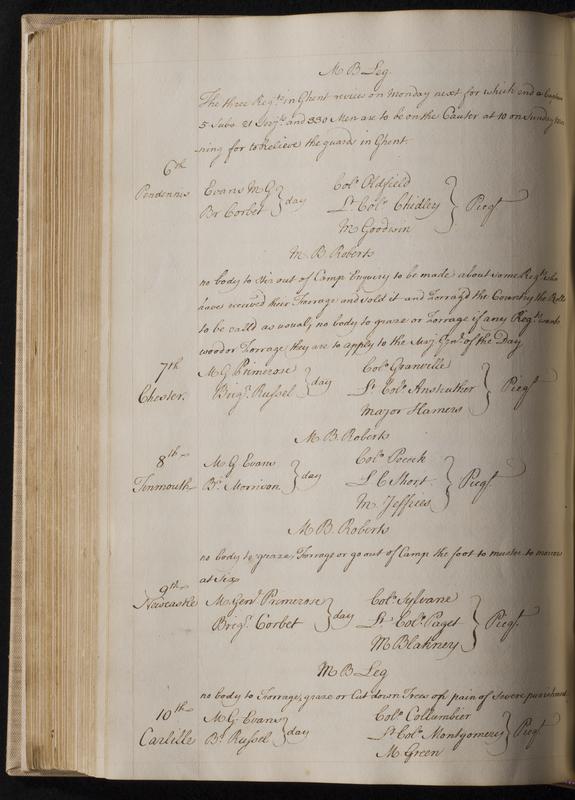 M. B. Leg.
The three Regts. in Ghent review on Monday next for which end a Captain
5 Subs 21 Serjts. and 330 Men are to be on the Cauter at 10 on Sunday Mor
ning for to relieve the guards in Ghent.
6th
Pendennis Evans M G } day Colo. Oldfield } Piegt
Br Corbet Lt. Colo. Chidley
M Goodwin
M. B. Roberts
no body to stir out of Camp Enquiry to be made about some Regts. who
have received their Forrage and sold it and Forrag'd the Country the Rolls
to be call'd as usual, no body to graze or Forrage if any Regt. wants
wood or Forrage they are to apply to the Maj. Genl. of the Day
7th M G Primerose } day Colo. Granville } Piegt
Chester. Brigr. Russel Lt. Colo. Anstruther
Major Hamers
M. B. Roberts
8th M G Evans } day Colo. Pocock } Piegt
Tinmouth Br. Morrison L C Short
M Jeffries
M B. Roberts
no body to graze, Forrage or go out of Camp the foot to muster to morrow
at Six
9th
Newcastle M. Genl. Primerose } day Colo. Sylvane } Piegt
Brigr. Corbet Lt. Colo. Paget
M Blakney
M B Leg
no body to Forrage, graze or Cut down Trees on pain of severe punishment
10th M. G. Evans } day Colo. Collumbier } Piegt
Carlille Br. Russel Lt. Colo. Montgomery
M. Green